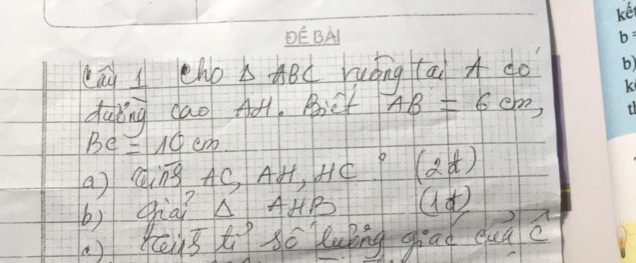 ĐỀ BÀI
Câu 1 Cho Δ ABC vuông tại A có
đường cao AH. Biết AB = 6 cm,
BC = 10 cm.
a) Tính AC, AH, HC (2đ)
b) Giải Δ AHB (1đ)
c) Tính tỉ số lượng giác của Ĉ
kế
b =
b)
k